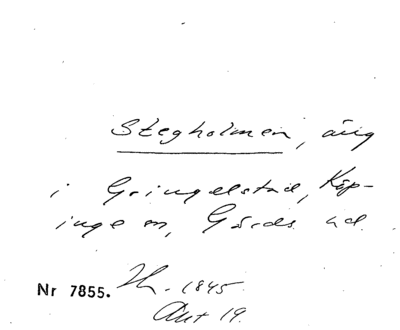 Stegholmen, äng
i Gringelstad, Köp-
inge sn, Gärds hd.
Nr 7855. Th. 1845
Akt 19.